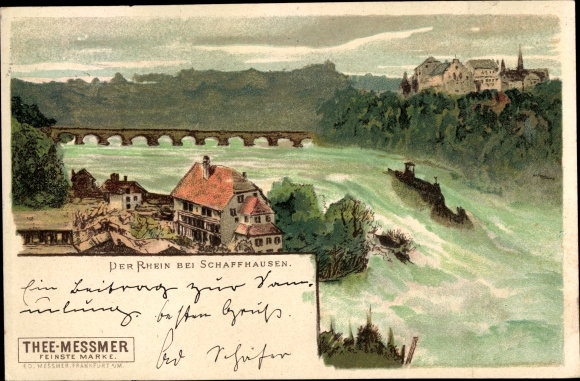 DER RHEIN BEI SCHAFFHAUSEN.
Ein Beitrag zur Sam-
mlung. besten Gruß.
Ed Schäfer
THEE-MESSMER
FEINSTE MARKE.
ED. MESSMER, FRANKFURT a/M.